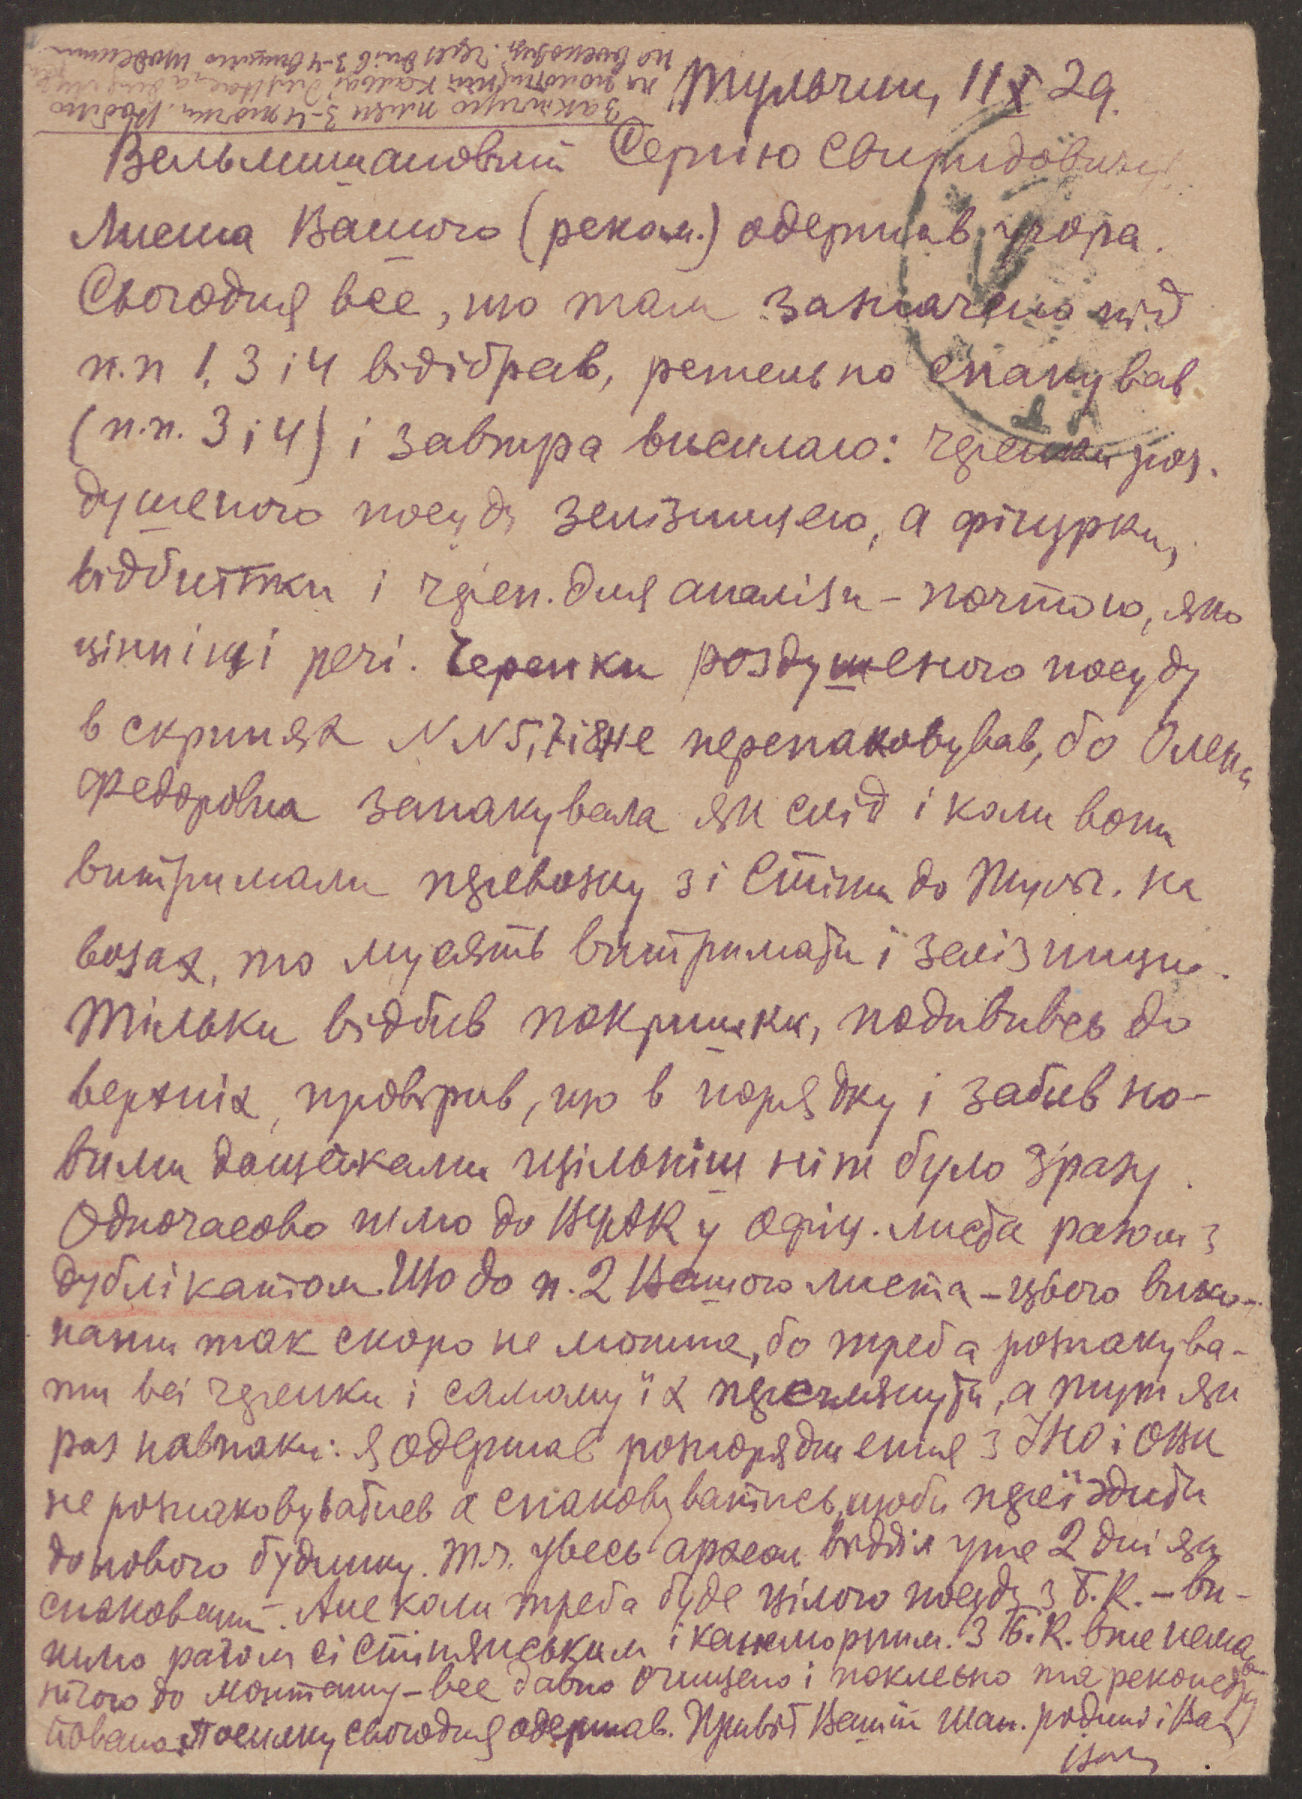 Тульчин, 11 X 29.
Вельмишановний Сергію Свиридовичу
Листа Вашого (реком.) одержав учора.
Сьогодня все, що там зазначено під
п.п 1, 3 і 4 відібрав, ретельно спакував
(п.п. 3 і 4) і завтра висилаю: черепки роз.
душеного посуду зелізницею, а фігурки,
відбитки і череп. для аналізи – поштою, яко
цінніщі речі. Черепки роздушеного посуду
в скринях NN 5, 7 і 8 не перепаковував, бо Олена
Федоровна запакувала як слід і коли вони
витримали перевозку зі Стіни до Тульч. на
возах, то мусять витримати і залізницю.
Тільки відбив покришки, подививсь до
верхніх, провірив, що в порядку і забив но-
вими дощечками щільніш ніж було зразу.
Одночасово шлю до ВУАК'у офіц. листа разом з
дублікатом. Що до п. 2 Вашого листа – цього вико-
нати так скоро не можна, бо треба розпакува-
ти всі черепки і самому їх переглянути, а тут як
раз навпаки: я одержав розпорядження з ІНО і
не розпаковуватись а спаковуватись, щоби переїздити
до нового будинку. Т.ч. увесь археол. відділ уже 2 дні як
спакований. Але коли треба буде цілого посуду з Б.К. – ви-
шлю разом зі Стінянським і . З Б.К. вже нема
нічого до монтажу – все давно очищено і поклеєно та реконстру
йовано. Посилку сьогодня одержав. Привіт Вашій шан. родині і Вам

Закінчую плен 3-4 точки. Робимо
на
по . Через днів 3-4 вишлю